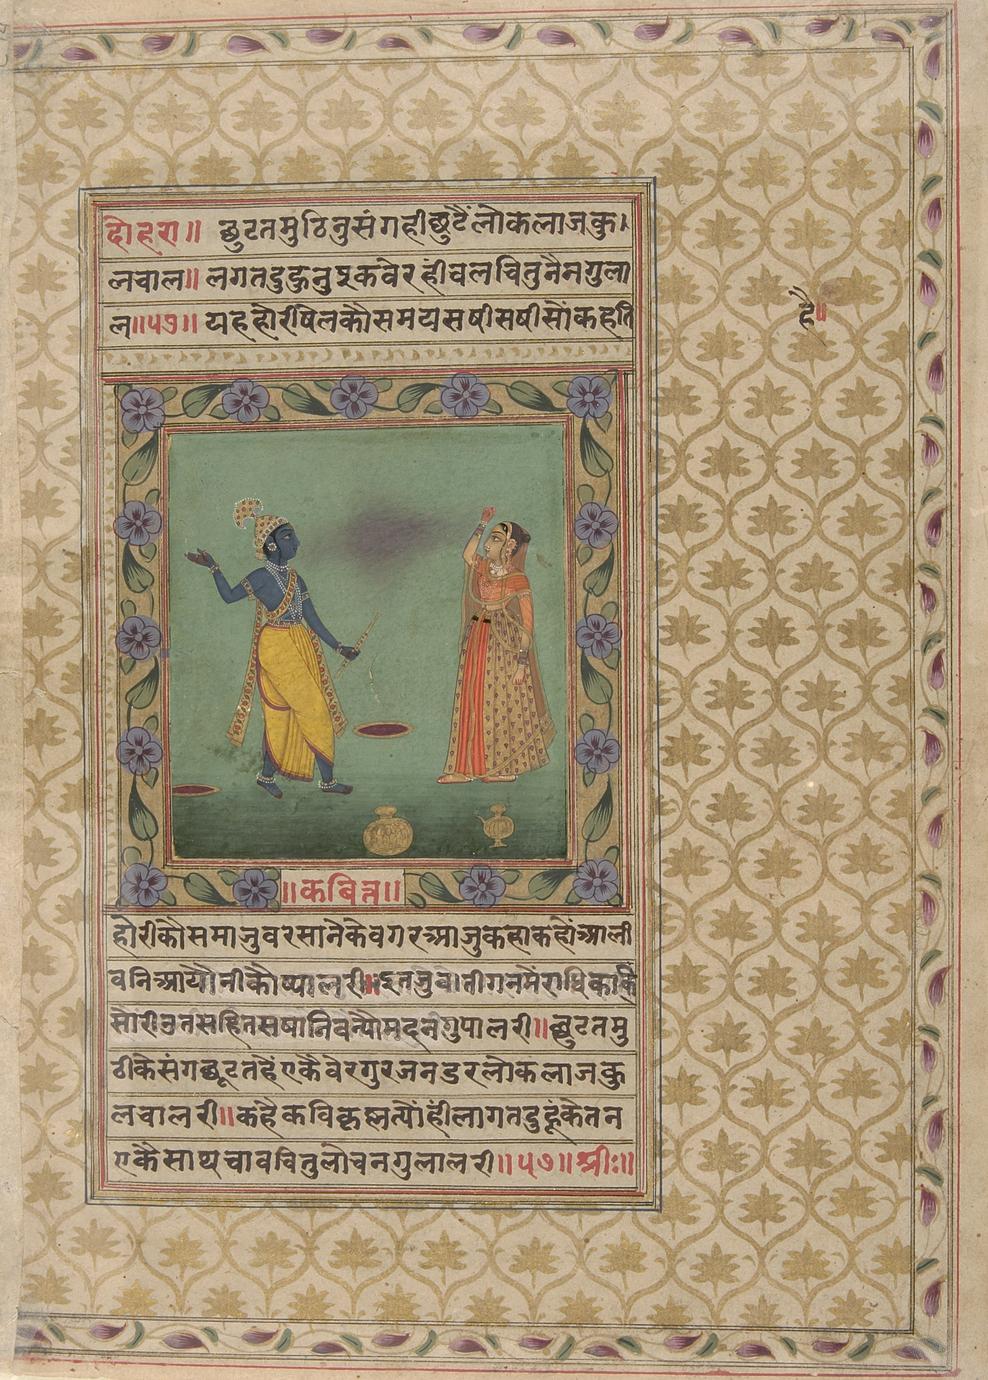 दोहरा॥ छुटतमुठिनुसंगहीछुटैंलोकलाजकु।
लचाल॥ लगतदुहुनुइकवेरहींचलचितुनैनगुला
ल॥५७॥ यहहोरीषेलकौसमयसषीसषीसौंकहति
है॥
॥कबित्त॥
होरीकौसमाजुवरसानेकेवगरआजुकहाकहौंआली
वनिआयौनीकौष्यालरी॥इतजुवतीगनमैंराधिकाकि
सोरीउतसहितसषानिवन्यौमदनगुपालरी॥छुटतमु
ठीकेसंगछूटतहैंएकैवेरगुरजनडरलोकलाजकु
लचालरी॥कहैकविकृष्णत्यौंहींलागतदुहूंकेतन
एकैसाथचावचितुलोचनगुलालरी॥५७॥श्रीः॥